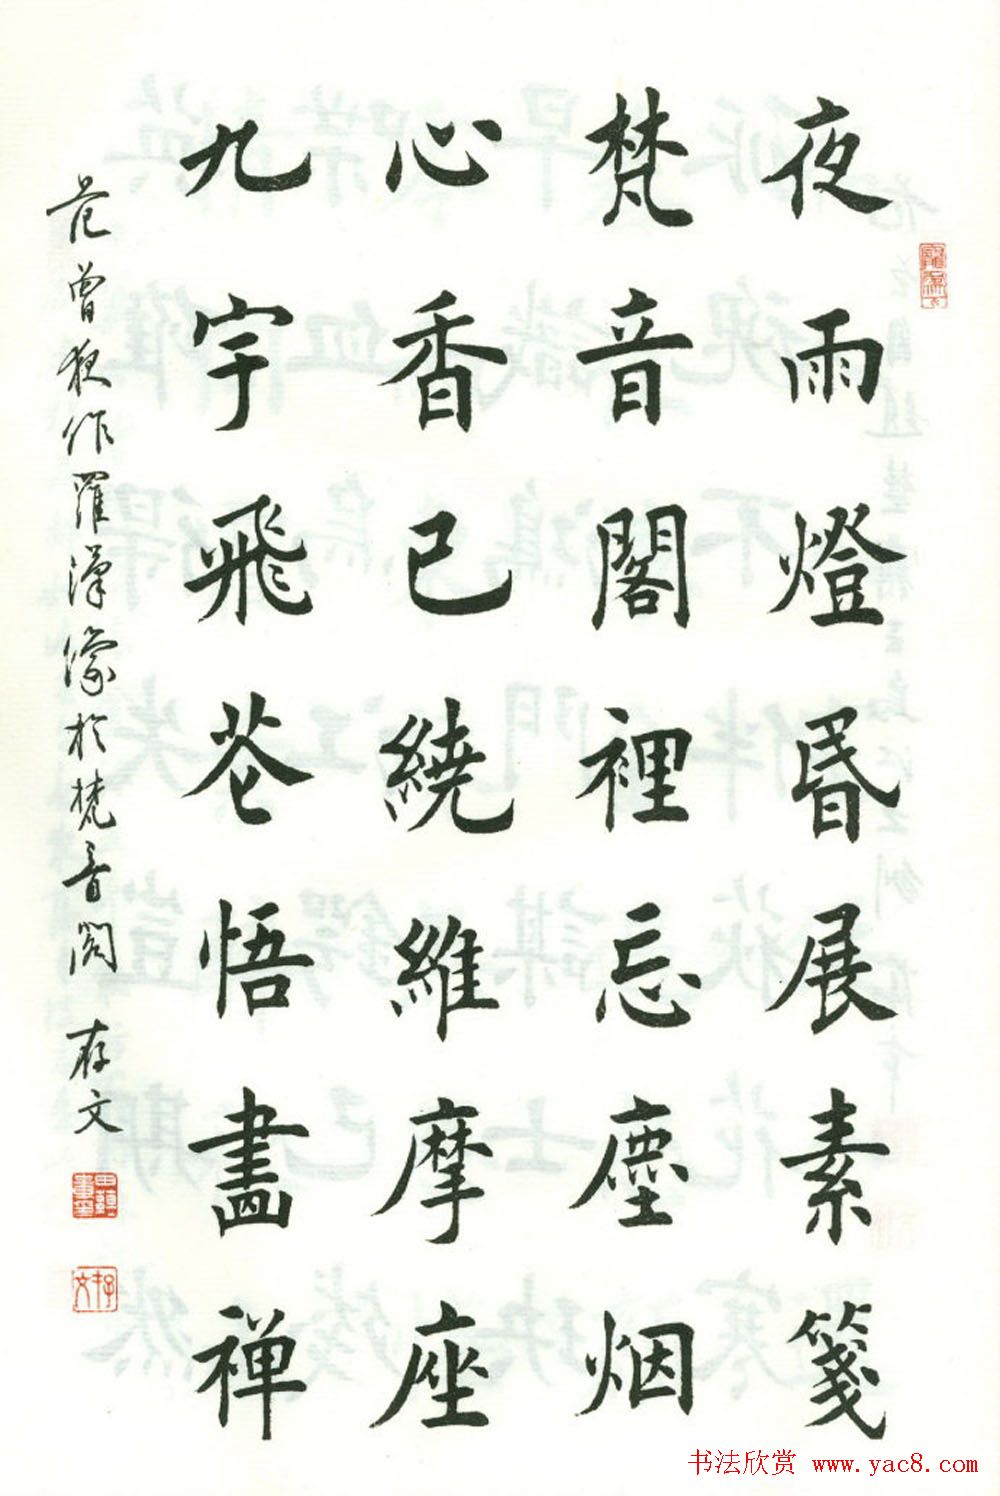 夜雨燈昏展素箋
梵音閣裡忘塵烟
心香已繞維摩座
九宇飛花悟畫禅
范曾夜作羅漢像於梵音閣 存文
存文
书法欣赏 www.yac8.com